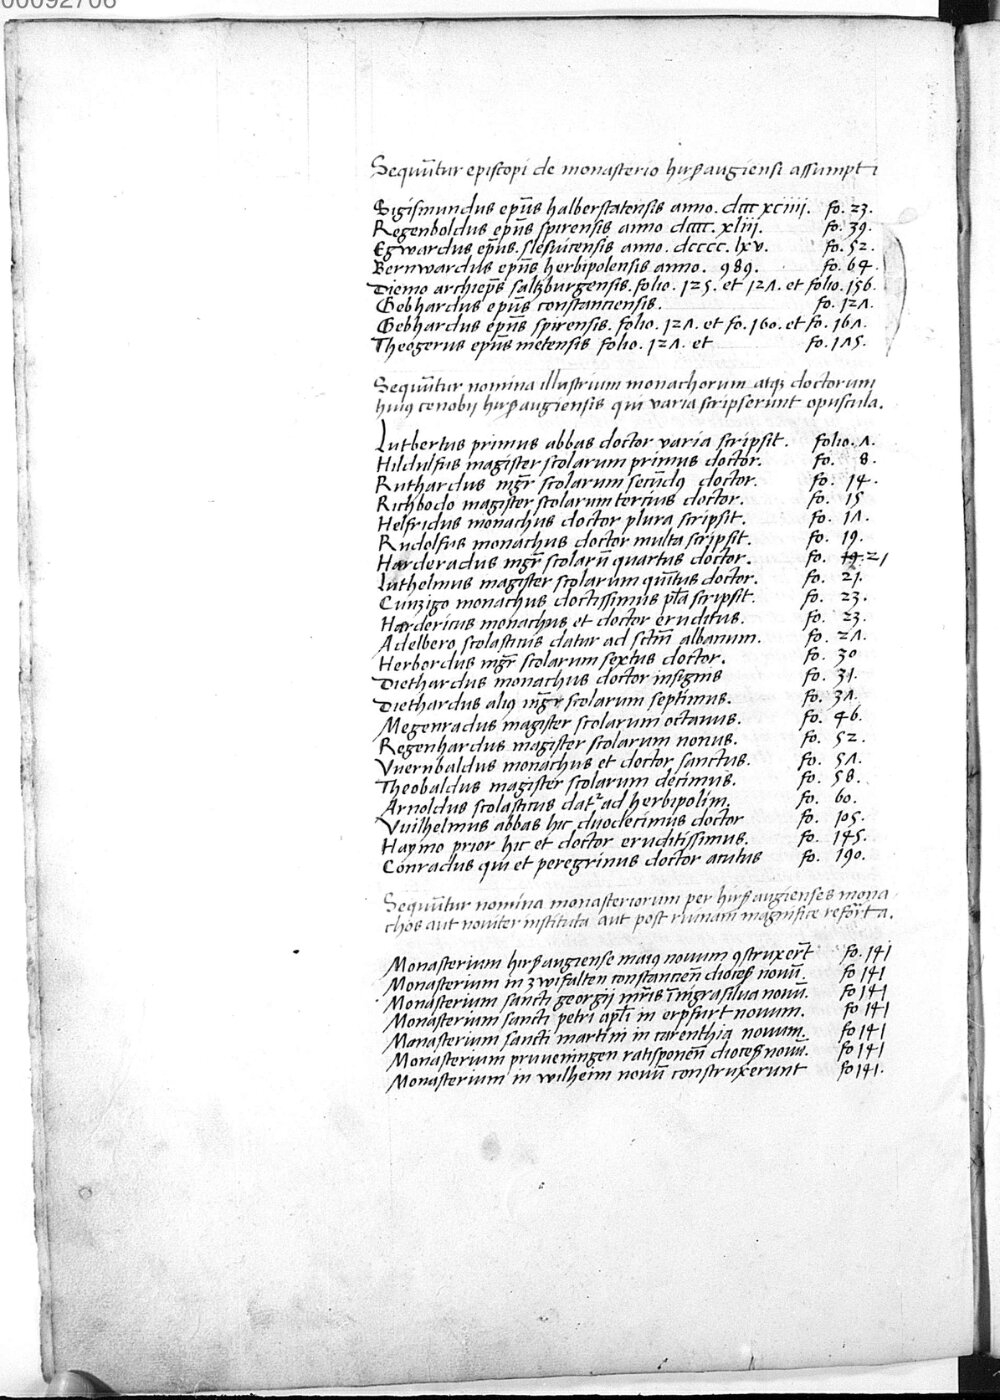 00092706
Sequu͞tur episcopi de monasterio hirsaugiensi assumpti
Sigismundus ep͞us halberstatensis anno. dccc xciiii. fo. 23.
Regenboldus ep͞us spirensis anno dcccc. xliii. fo. 39.
Egwardus ep͞us. slesuicensis anno. dcccc. lxv. fo. 52.
Bernwardus ep͞us herbipolensis anno. 989. fo. 64.
Diemo archiep͞s salzburgensis. folio. 125. et 127. et folio. 156.
Gebhardus ep͞us constanciensis. fo. 127.
Gebhardus ep͞us spirensis. folio. 127. et fo. 160. et fo. 167.
Theogerus ep͞us metensis folio. 127. et fo. 175.
Sequu͞tur nomina illustrium monachorum atqꝫ doctorum
huiꝰ cenobii hirsaugiensis qui varia scripserunt opuscula.
Lutbertus primus abbas doctor varia scripsit. folio. 7.
Hildulfus magister scolarum primus doctor. fo. 8.
Ruthardus mg͞r scolarum secu͞dꝰ doctor. fo. 14.
Richbodo magister scolarum tercius doctor. fo. 15
Helfridus monachus doctor plura scripsit. fo. 17.
Rudolfus monachus doctor multa scripsit. fo. 19.
Harderadus mg͞r scolaru͞ quartus doctor. fo. 19. 21
Luthelmus magister scolarum qui͞tus doctor. fo. 21.
Cunzigo monachus doctissimus pl͞a scripsit. fo. 23.
Hardericus monachus et doctor eruditus. fo. 23.
Adelbero scolasticus datur ad sct͞m albanum. fo. 27.
Herbordus mg͞r scolarum sextus doctor. fo. 30
Diethardus monachus doctor insignis fo. 31.
Diethardus aliꝰ mg͞r scolarum septimus. fo. 37.
Megenradus magister scolarum octauus. fo. 46.
Regenhardus magister scolarum nonus. fo. 52.
Vuernbaldus monachus et doctor sanctus. fo. 57.
Theobaldus magister scolarum decimus. fo. 58.
Arnoldus scolasticus dat᷑ ad herbipolim. fo. 60.
Vuilhelmus abbas hic duodecimus doctor fo. 105.
Haymo prior hic et doctor eruditissimus. fo. 145.
Conradus qui et peregrinus doctor acutus fo. 190.
Sequu͞tur nomina monasteriorum per hirsaugienses mona
chos aut nouiter instituta aut post ruinam magnifice refor͞ta.
Monasterium hirsaugiense maiꝰ nouum ꝯstruxer͞t fo. 141
Monasterium in zwifalten constancien͞ dioces͞ nouu͞. fo 141
Monasterium sancti georgii m͞ris i͞ nigra silua nouu͞. fo 141
Monasterium sancti petri apl͞i in erpfurt nouum. fo 141
Monasterium sancti martini in carenthia nouum. fo 141
Monasterium pruueningen ratisponen͞ dioces͞ nouu͞. fo 141
Monasterium in wilheim nouu͞ construxerunt fo 141.